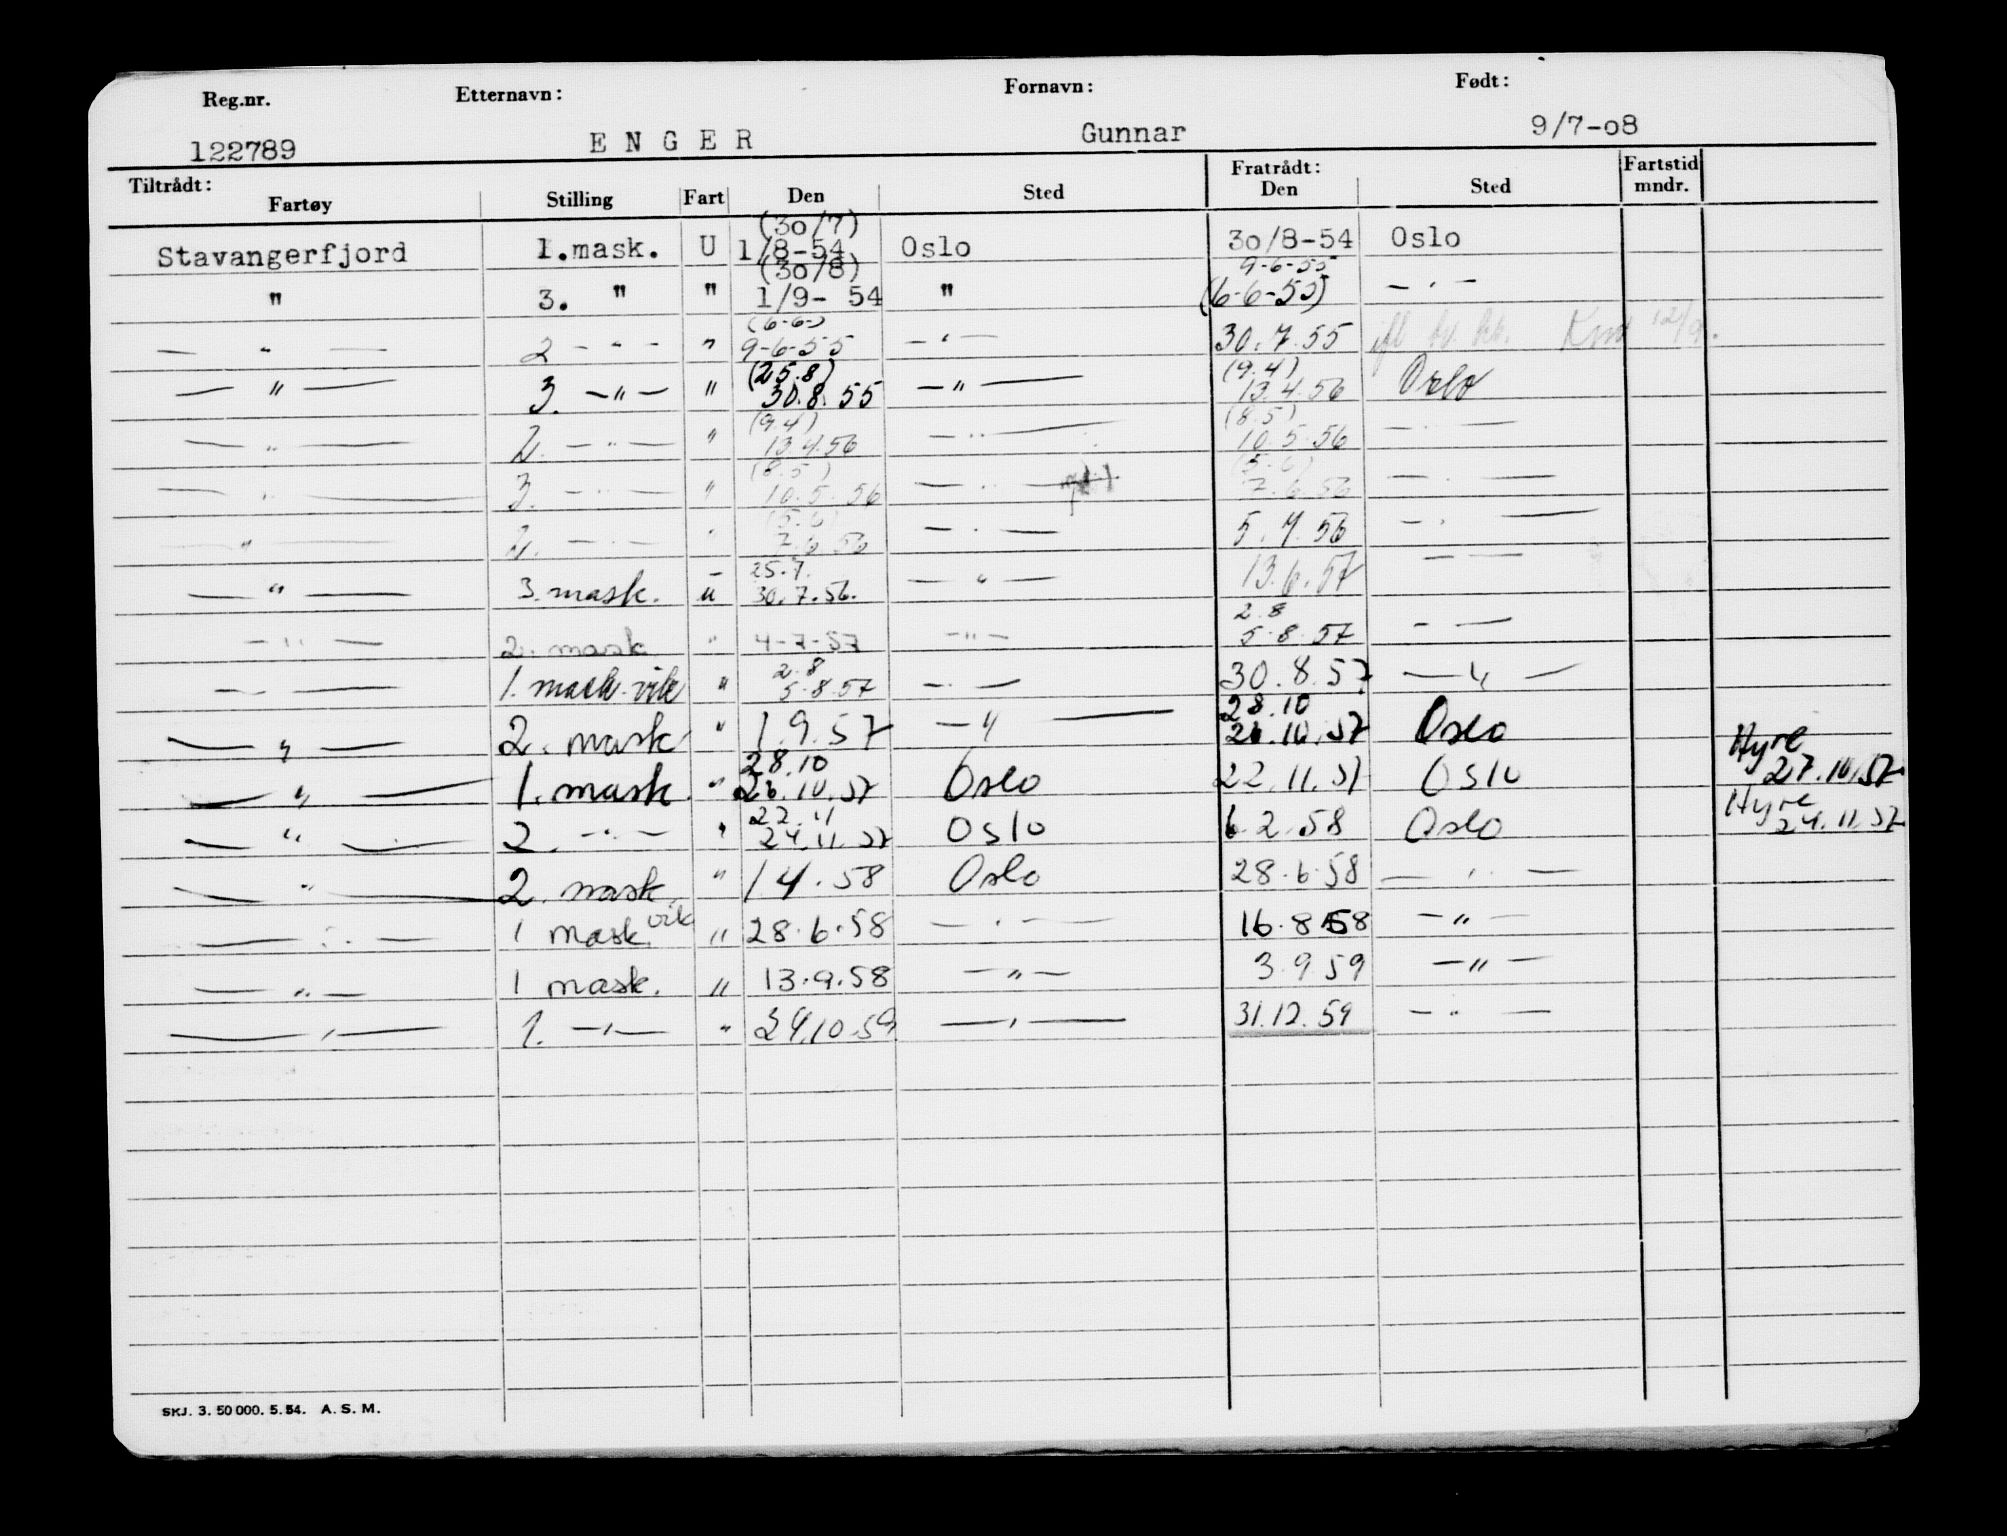 Reg.nr. Etternavn: Fornavn: Født:
122789 E N G E R Gunnar 9/7-08
Tiltrådt: Fratrådt: Fartstid
Fartøy Stilling Fart Den Sted Den Sted mndr.
(30/7)
Stavangerfjord 1.mask. U 1/8-54 Oslo 30/8-54 Oslo
(30/8) 9-6-55
" 3. " " 1/9- 54 " (6-6-55) — " —
(6-6-)
— " — 2 - " - " 9-6-55 — " — 30.7.55 12/9.
(25.8) (9.4)
— " — 3. — " — " 30.8.55 — " — 13.4.56 Oslo
(9.4) (8.5)
— " — 2. — " — " 13.4.56 — " — 10.5.56 — " —
(8.5) (5.6)
— " — 3. — " — " 10.5.56 — " — 7.6.56 — " —
(5.6)
— " — 2. — " — " 7.6.56 — " — 5.7.56 — " —
25.7.
— " — 3. mask. u 30.7.56. — " — 13.6.57 — —
2.8
— " — 2. mask " 4-7-57 — " — 5.8.57 — —
2.8
— " — 1. mask. vik " 5.8.57 — " — 30.8.57 — " —
28.10
— " — 2. mask " 1.9.57 — " — 26.10.57 Oslo
28.10 Hyre
— " — 1. mask. " 26.10.57 Oslo 22.11.57 Oslo 27.10.57
22.11 Hyre
— " — 2. — " — " 24.11.57 Oslo 6.2.58 Oslo 24.11.57
— " — 2. mask. " 1.4.58 Oslo 28.6.58 — " —
— " — 1 mask. vik " 28.6.58 — " — 16.8.58 — " —
— " — 1 mask. " 13.9.58 — " — 3.9.59 — " —
— " — 1. — " — " 29.10.59 — " — 31.12.59 — " —
SKJ. 3. 50 000. 5. 54. A. S. M.